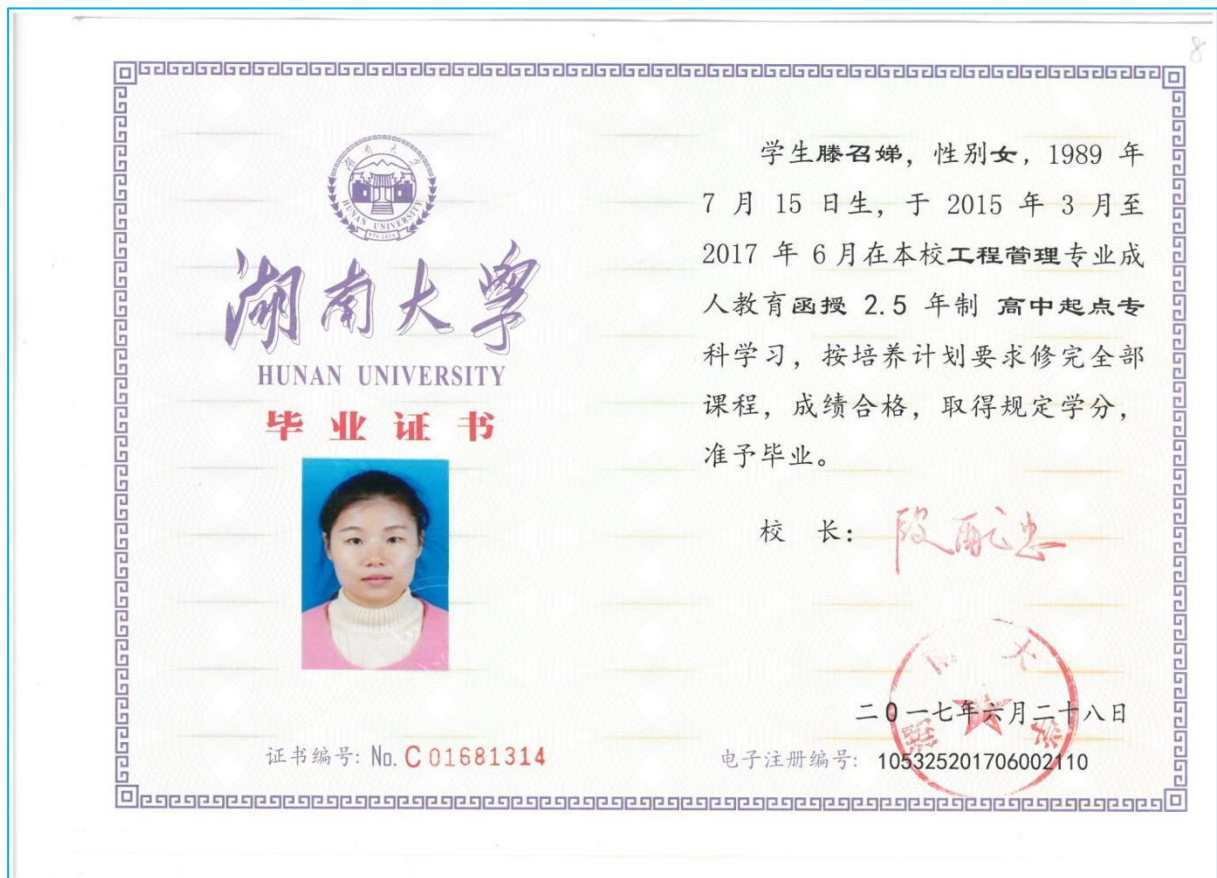 8
湖南大学
HUNAN UNIVERSITY
湖南大学
HUNAN UNIVERSITY
毕业证书
证书编号: No. C01681314
学生滕召娣，性别女，1989 年
7 月 15 日生，于 2015 年 3 月至
2017 年 6 月在本校工程管理专业成
人教育函授 2.5 年制 高中起点专
科学习，按培养计划要求修完全部
课程，成绩合格，取得规定学分，
准予毕业。
校 长：
湖南大学
二0一七年六月二十八日
电子注册编号: 105325201706002110